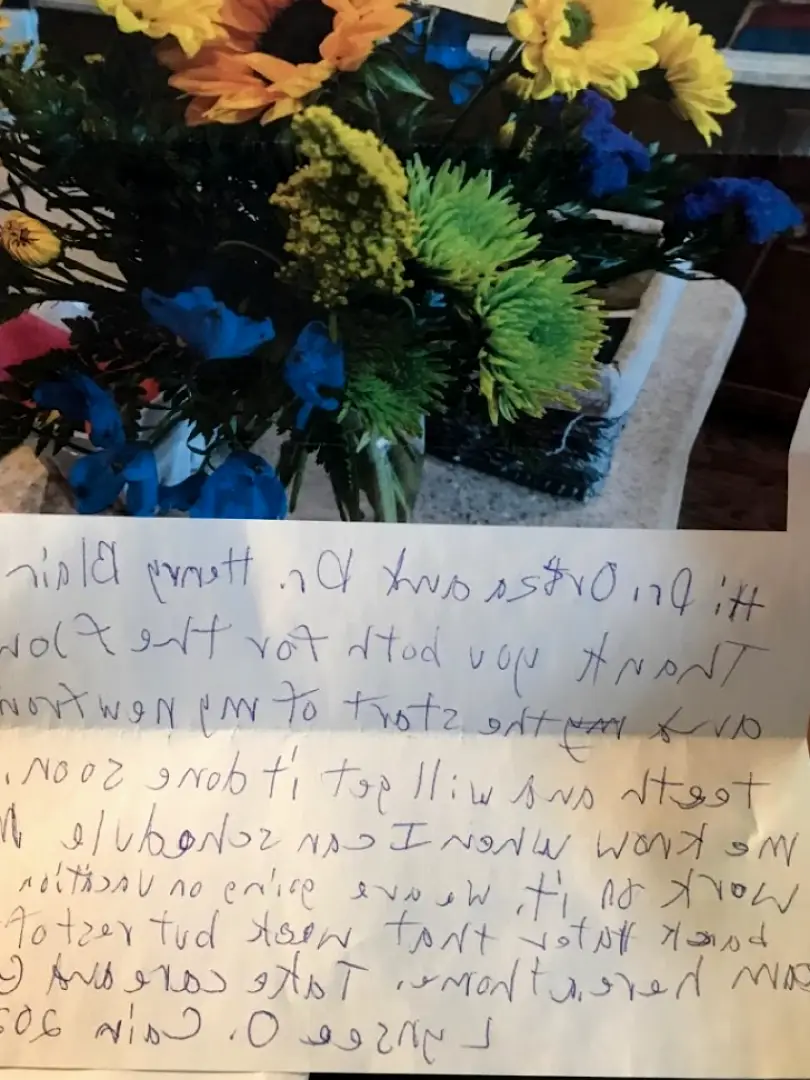 Hi Dr. and Dr. Henry Blair
Thank you both for the Flow
and my the start of my new fron
teeth and will get it done soon.
me know when I can schedule
work on it, we are going on vacation
back that week but rest of
am here at home. Take care and
Lynsee O. Cain 202